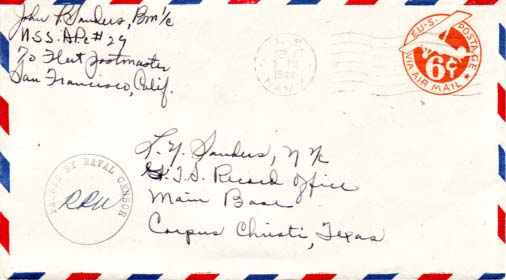 John P. Sanders, BM 1/c
U.S.S. APc #29
℅ Fleet Postmaster
San Francisco, Calif.
U.S.
1944
U.S. POSTAGE
6¢
VIA AIR MAIL
L. Y. Sanders, Y 1/c
G.T.S. Record Office
Main Base
Corpus Christi, Texas
PASSED BY NAVAL CENSOR